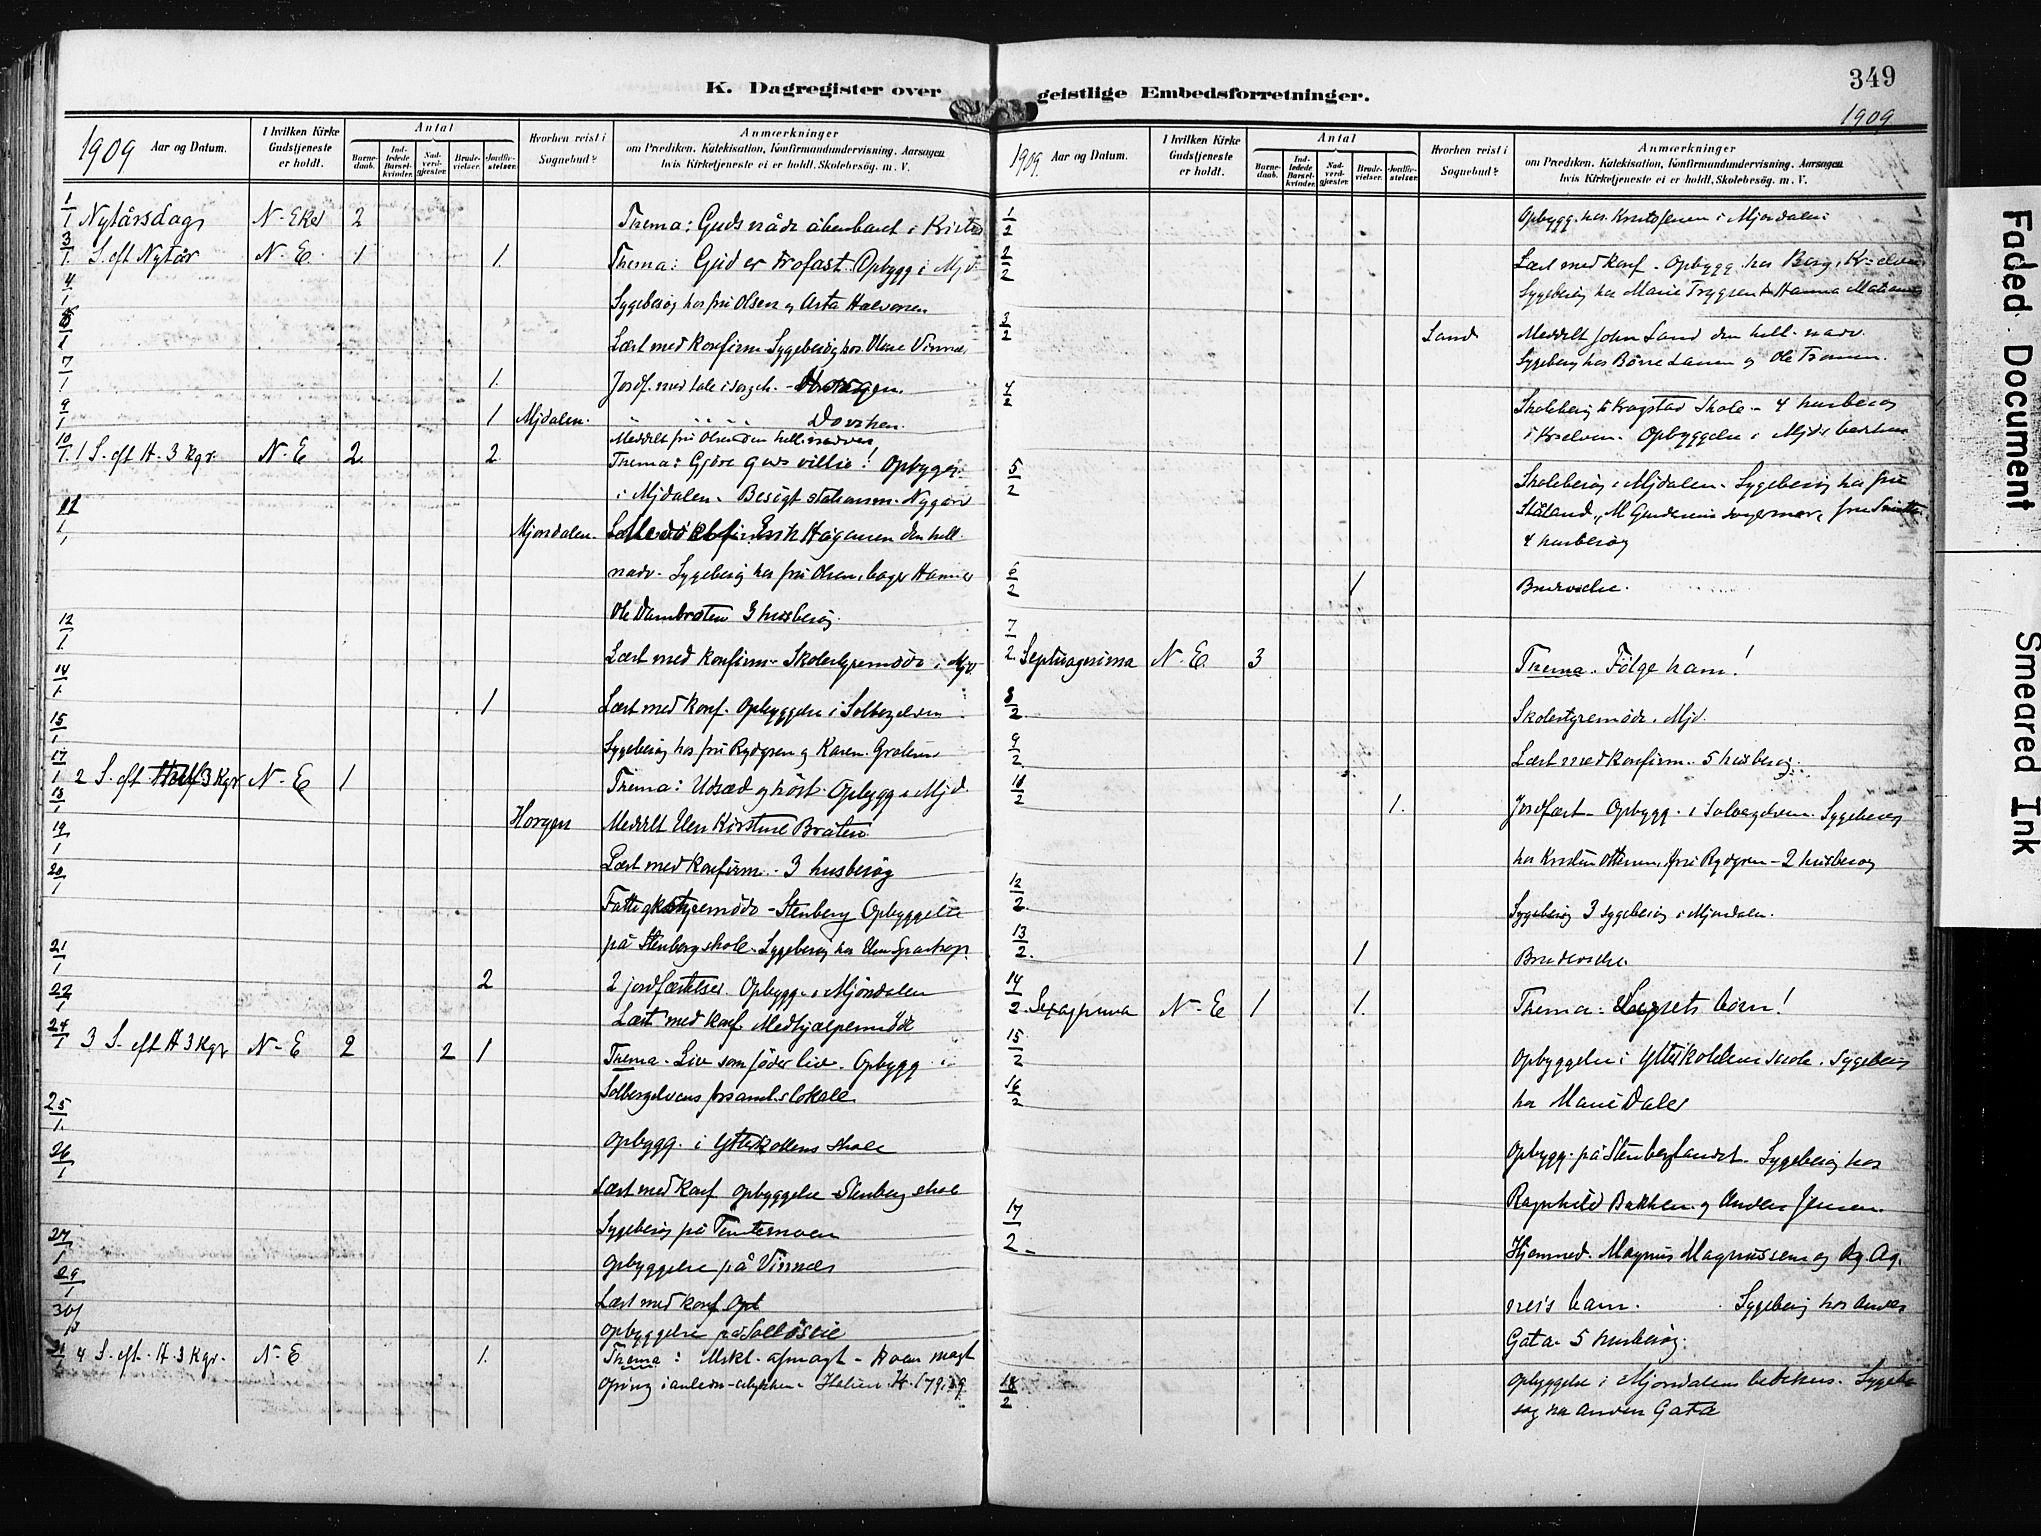 K. Dagregister over
1909 Aar og Datum.
I hvilken Kirke Gudstjeneste er holdt.
Antal
Barne-daab.
Ind-ledede Barsel-kvinder.
Nad-verd-gjæster.
Brude-vielser.
Jordfæ-stelser.
Hvorhen reist i Sognebud?
Anmærkninger
om Prædiken, Katekisation, Konfirmandundervisning, Aarsagen
hvis Kirketjeneste ei er holdt, Skolebesøg. m. V.
1/1 Nytårsdag N-Eker 2 Thema: Guds nåde åbenbaret i Kristus
3/1 S. eft Nytår N-E. 1 1. Thema: Gud er trofast. Opbygg i Mjd.
4/1 Sygebesøg hos fru Olsen og Asta Halvorsen
5/1 Læst med konfirm Sygebesøg hos Vinnæs
7/1 1. Jordf. med tale i sørgeh. - Horgen.
9/1 1 Mjdalen. Dovrhen.
Meddelt fru Olsen den hell. nadver
10/1 1 S. eft H. 3 Kgr. N-E 2. 2. Thema: Gjøre Guds villie! Opbygg.
i Mjdalen. Besøgt stationsm. Nygård
11/1 Mjøndalen. Hågansen den hell.
nadv. Sygebesøg hos fru Olsen, bager Hammer
Ole Dambråten 3 husbesøg.
12/1 Læst med konfirm. Skolestyremøde i Mjd.
14/1 1 Læst med konf. Opbyggelse i Solbergelven
15/1 Sygebesøg hos fru Rydgren og Karen
17/1 2 S. eft H 3 Kgr N-E 1 Thema: Udsæd og høst. Opbygg i Mjd.
18/1 Horgen Meddelt Elen Kirstine Bråten
19/1 Læst med konfirm. 3 husbesøg
20/1 Fattigstyremøde - Stenberg Opbyggelse
på Stenberg skole. Sygebesøg hos
21/1 2 2 jordfæstelser. Opbygg. i Mjøndalen
22/1 Læst med konf. Medhjælpermøde
24/1 3 S. eft H 3 Kgr N-E 2 2 1 Thema. Liv som føder liv. Opbygg i
Solbergelvens forsaml.slokale
25/1 Opbygg. i Ytterkollens skole
26/1 Læst med konf Opbyggelse Stenberg skole
Sygebesøg på Temtemoen
27/1 Opbyggelse på Vinnæs
29/1 Læst med konf Opb
30/1 Opbyggelse på
31/1 4 S. eft. H. 3 Kgr. N-E 1. Thema: afmagt - magt
geistlige Embedsforretninger.
349
1909
1909. Aar og Datum.
I hvilken Kirke Gudstjeneste er holdt.
Antal
Barne-daab.
Ind-ledede Barsel-kvinder.
Nad-verd-gjester.
Brude-vielser.
Jordfæ-stelser.
Hvorhen reist i Sognebud?
Anmærkninger
om Prædiken, Katekisation, Konfirmandundervisning, Aarsagen
hvis Kirketjeneste ei er holdt, Skolebesøg. m. V.
1/2 Opbygg. hos Kristofersen i Mjøndalen
2/2 Læst med konf. Opbygg. hos Berg, Krselven
Sygebesøg hos Marie Trygsen Hanna
3/2 Sand Meddelt John Sand den hell. nadv.
Sygebesøg hos Børre Larsen og Ole
4/2 Skolebesøg Krogstad Skole - 4 husbesøg
i Krselven. Opbyggelse i Mjd's bedehus
5/2 Skolebesøg i Mjdalen. Sygebesøg hos fru
4 husbesøg
6/2 1 Brudevielse.
7/2 Septuagesima N-E. 3 Thema. Følge ham!
8/2. Skolestyremøde. Mjd.
9/2. Læst med konfirm. 5 husbesøg.
10/2 1. Jordfæst. Opbygg. i Solbergelven. Sygebesøg
hos Kristian Ottersen, fru Rydgren - 2 husbesøg
12/2. Sygebesøg 3 sygebesøg i Mjøndalen.
13/2. 1 Brudevielse.
14/2. Sexagesima N-E 1 1. Thema: Lysets børn!
15/2 Opbyggelse i Ytterkollens skole. Sygebesøg
16/2 hos Marie Daler
Opbygg. på Stenberglandet. Sygebesøg hos
Ragnhild Bakken og Anders Jensen
17/2. Hjemmed. Magnus Magnussen og Ag. Ag.
nes's barn. Sygebesøg hos Anders
Gata 5 husbesøg.
18/2 Opbyggelse i Mjøndalens bedehus. Sygebe
søg hos Anders Gata
Faded Document
Smeared Ink